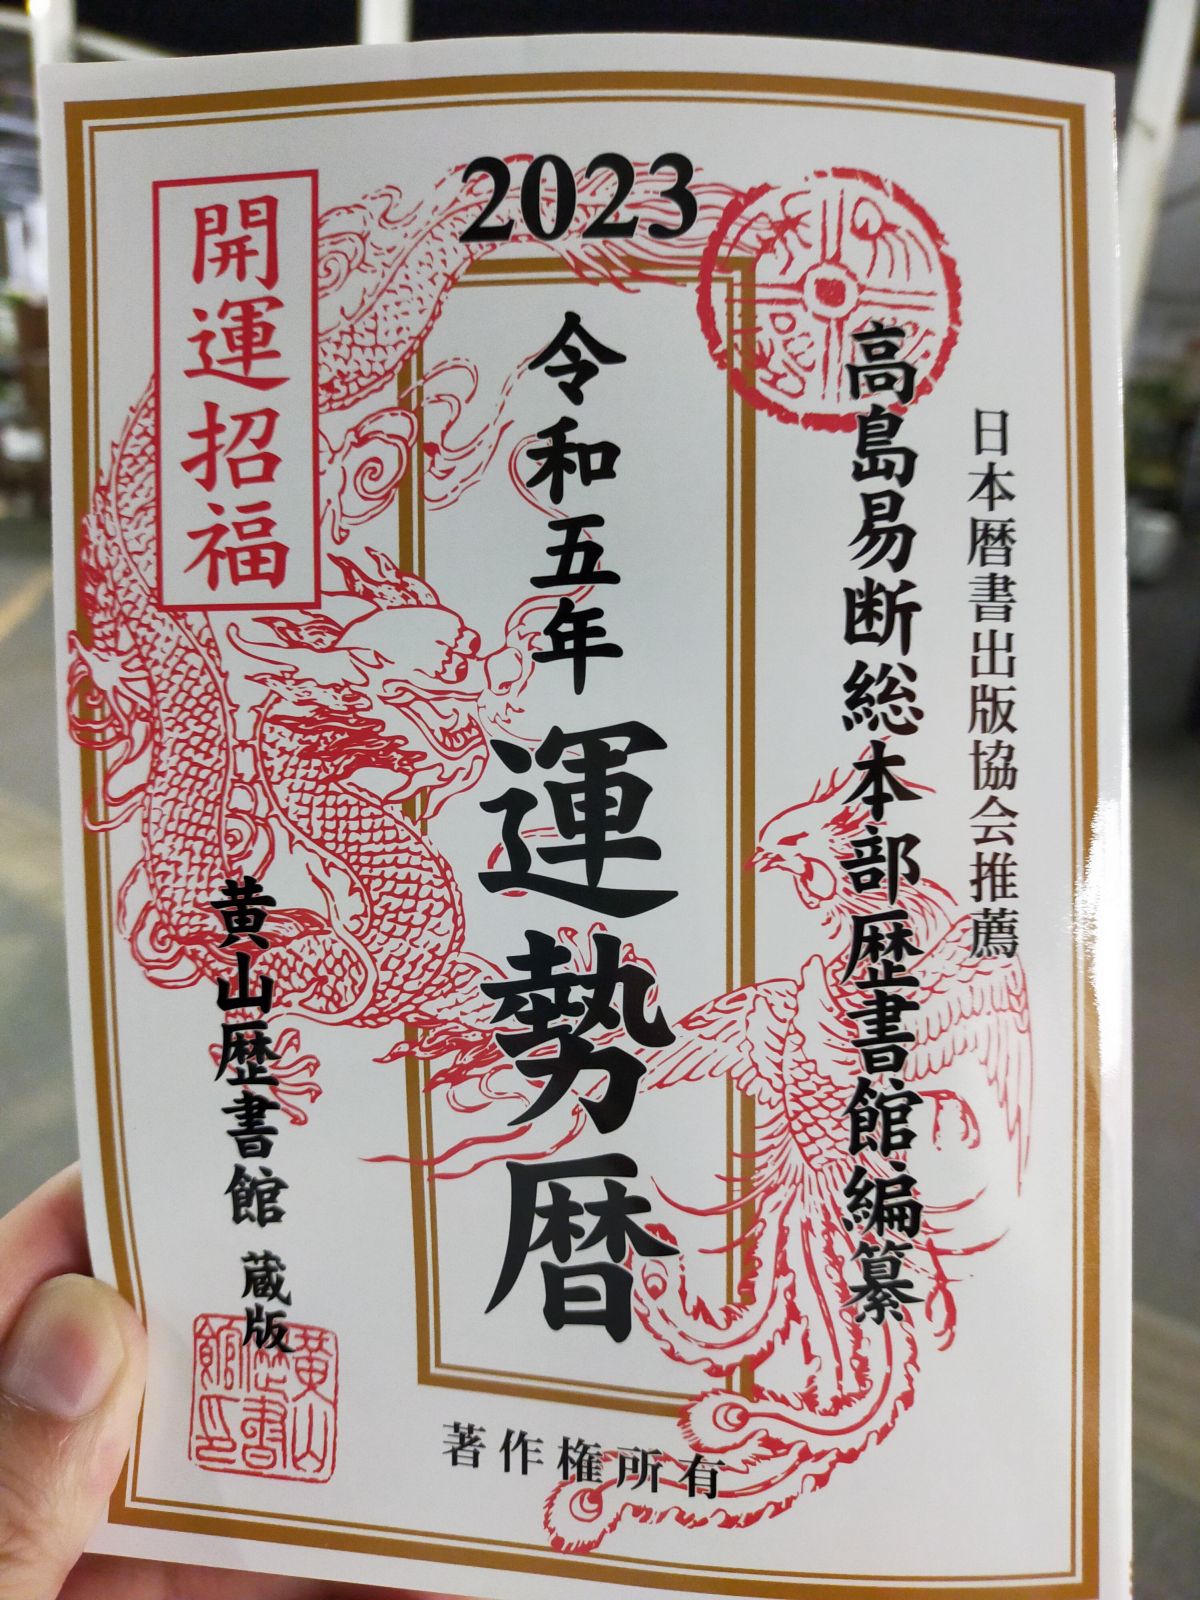 2023
日本暦書出版協会推薦
高島易断総本部歴書館編纂
令和五年
運勢暦
開運招福
黄山歴書館 蔵版
黄山歴書館印
著作権所有